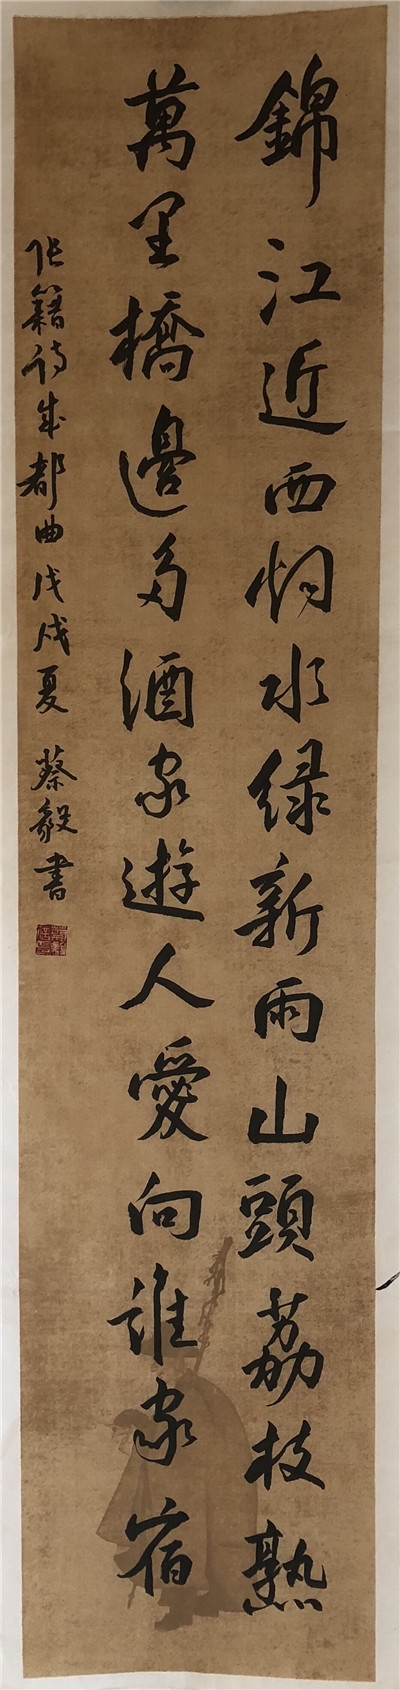 錦江近西烟水绿新雨山頭荔枝熟
萬里橋邊多酒家遊人愛向誰家宿
张籍诗成都曲戊戌夏 蔡毅書